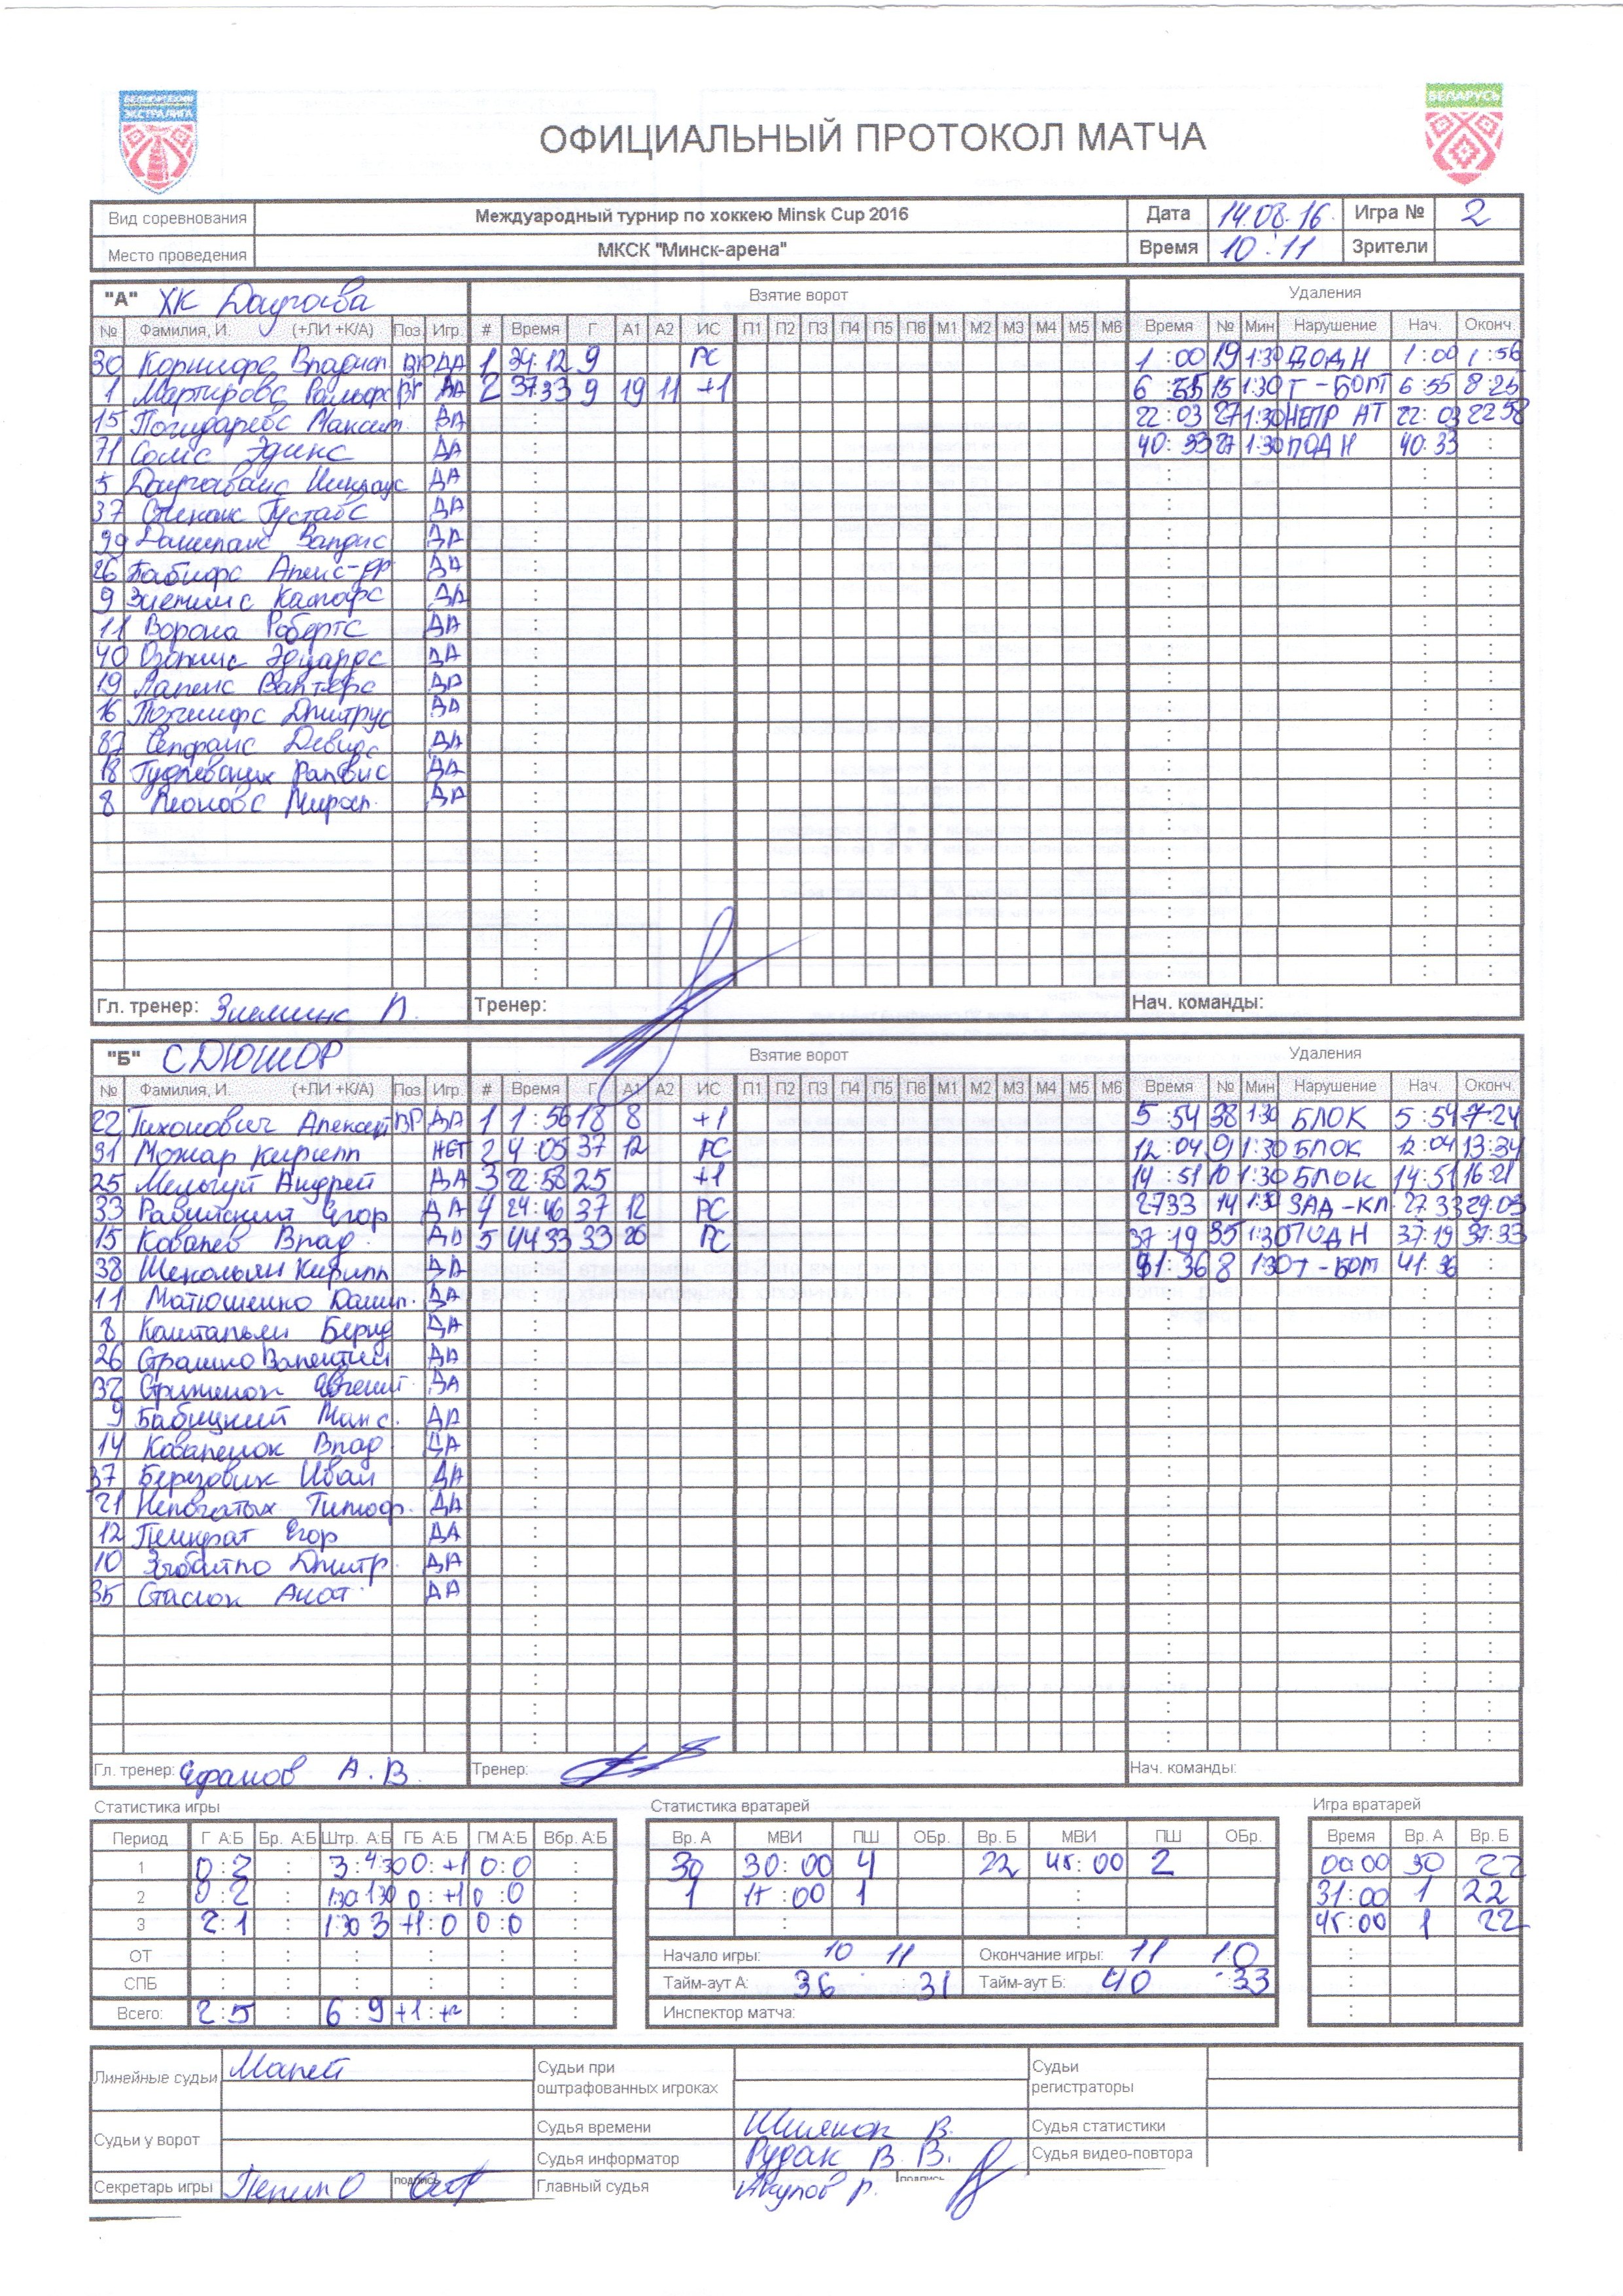 БЕЛОРУССКАЯ ЭКСТРАЛИГА
БЕЛАРУСЬ
ОФИЦИАЛЬНЫЙ ПРОТОКОЛ МАТЧА
Вид соревнования Междуародный турнир по хоккею Minsk Cup 2016 Дата 14.08.16. Игра № 2
Место проведения МКСК "Минск-арена" Время 10:11 Зрители
"А" ХК Даугава Взятие ворот Удаления
№ Фамилия, И. (+ЛИ +К/А) Поз. Игр. # Время Г А1 А2 ИС П1 П2 П3 П4 П5 П6 М1 М2 М3 М4 М5 М6 Время № Мин Нарушение Нач. Оконч.
30 ВР ДА 1 34:12 9 РС 1:00 19 1:30 ПОДН 1:00 1:56
1 Мартыновс Ральфс ВР ДА 2 37:33 9 19 11 +1 6:55 15 1:30 Т-БОРТ 6:55 8:25
15 Максим. ДА 22:03 27 1:30 НЕПР АТ 22:03 22:58
71 Сомс Эдинс ДА 40:33 27 1:30 ПОДН 40:33 :
5 Даугавванс Никлаус ДА
37 Густавс ДА
99 Валдис ДА
26 ДА
9 ДА
11 Ворона Робертс ДА
40 Озолинс Эдуардс ДА
19 Лапенс Валтерс ДА
16 ДА
87 ДА
18 ДА
8 Леоновс Мирос. ДА
Гл. тренер: Зиеминс Л. Тренер: Нач. команды:
"Б" СДЮШОР Взятие ворот Удаления
№ Фамилия, И. (+ЛИ +К/А) Поз. Игр. # Время Г А1 А2 ИС П1 П2 П3 П4 П5 П6 М1 М2 М3 М4 М5 М6 Время № Мин Нарушение Нач. Оконч.
22 Тихонович Алексей ВР ДА 1 1:56 18 8 +1 5:54 38 1:30 БЛОК 5:54 7:24
31 Можар Кирилл НЕТ 2 4:05 37 12 РС 12:04 9 1:30 БЛОК 12:04 13:34
25 Мельгуй Андрей ДА 3 22:58 25 +1 14:51 10 1:30 БЛОК 14:51 16:21
33 Равинский Егор ДА 4 24:46 37 12 РС 27:33 14 1:30 ЗАД-КЛ 27:33 29:03
15 Ковалев Влад. ДА 5 44:33 33 26 РС 37:19 35 1:30 ПОДН 37:19 37:33
38 Кирилл ДА 41:36 8 1:30 Т-БОРТ 41:36 :
11 Матюшенко Данил. ДА
8 Каштальян Берид ДА
26 Страшко Валентин ДА
32 Стриженок Евгений ДА
9 Бабицкий Макс. ДА
14 Коваленок Влад ДА
37 Березовик Иван ДА
21 Непочатых Тимоф. ДА
12 Егор ДА
10 Дмитр. ДА
35 Стасюк Анат. ДА
Гл. тренер: Ефанов А.В. Тренер: Нач. команды:
Статистика игры Статистика вратарей Игра вратарей
Период Г А:Б Бр. А:Б Штр. А:Б ГБ А:Б ГМ А:Б Вбр. А:Б Вр. А МВИ ПШ ОБр. Вр. Б МВИ ПШ ОБр. Время Вр. А Вр. Б
1 0:2 : 3:4:30 0:+1 0:0 : 30 30:00 4 22 45:00 2 00:00 30 22
2 0:2 : 1:30 1:30 0:+1 0:0 : 1 15:00 1 : 31:00 1 22
3 2:1 : 1:30 3 +1:0 0:0 : : : 45:00 1 22
ОТ : : : : : : Начало игры: 10 11 Окончание игры: 11 10 :
СПБ : : : : : : Тайм-аут А: 36:31 Тайм-аут Б: 40:33 :
Всего: 2:5 : 6:9 +1:+2 : : Инспектор матча: :
Линейные судьи Малей Судьи при оштрафованных игроках Судьи регистраторы
Судьи у ворот Судья времени В. Судья статистики
Судья информатор Рудак В.В. Судья видео-повтора
Секретарь игры Пепик О подпись Главный судья Акулов Р. подпись